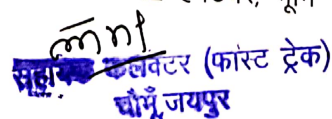 सहायक कलेक्टर (फास्ट ट्रेक)
चौमूँ, जयपुर